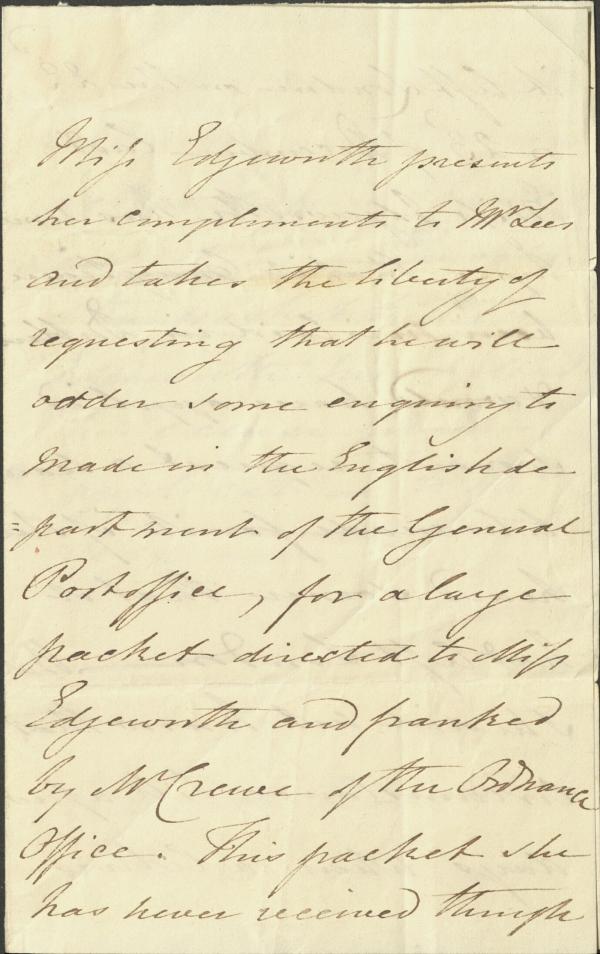 Miss Edgeworth presents
her compliments to Mr Lees
and takes the liberty of
requesting that he will
order some enquiry to
made in the English de
=partment of the General
Postoffice, for a large
packet directed to Miss
Edgeworth and franked
by Mr Crewe of the Ordnance
Office. This packet she
has never received though